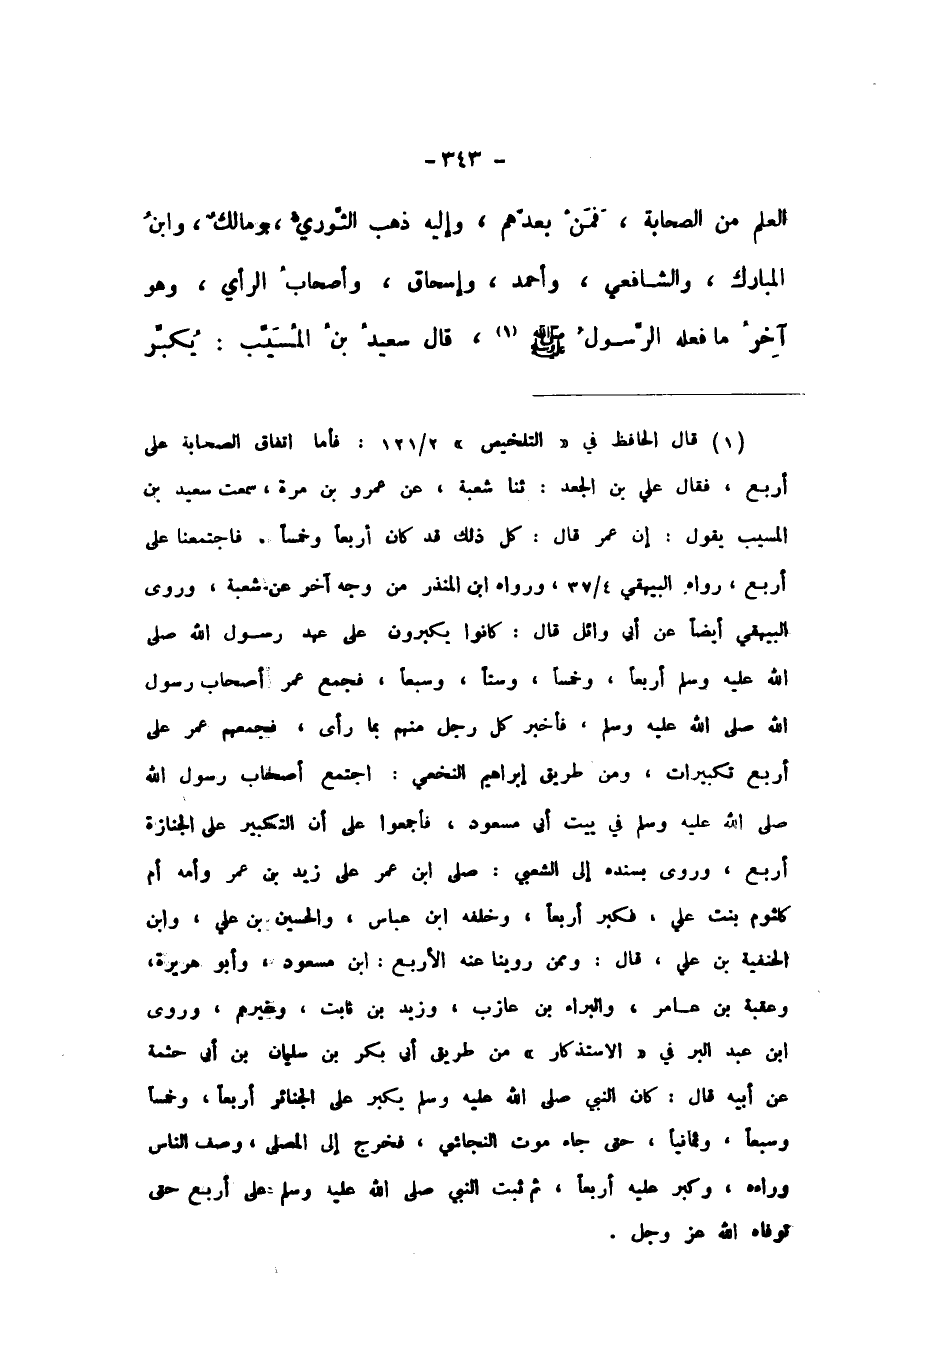 - ٣٤٣ -
العلم من الصحابة ، فمَنْ بعدَهم ، وإليه ذهب الثَّوريُّ ، ومالكٌ ، وابنُ
المبارك ، والشافعي ، وأحمد ، وإسحاق ، وأصحابُ الرأي ، وهو
آخِرُ ما فعله الرَّسولُ ﷺ (١) ، قال سعيدُ بنُ المُسَيَّب : يُكبِّر
(١) قال الحافظ في « التلخيص » ١٢١/٢ : فأما اتفاق الصحابة على
أربع ، فقال علي بن الجعد : ثنا شعبة ، عن عمرو بن مرة ، سمعت سعيد بن
المسيب يقول : إن عمر قال : كل ذلك قد كان أربعاً وخمساً . فاجتمعنا على
أربع ، رواه البيهقي ٣٧/٤ ، ورواه ابن المنذر من وجه آخر عن شعبة ، وروى
البيهقي أيضاً عن أبي وائل قال : كانوا يكبرون على عهد رسول الله صلى
الله عليه وسلم أربعاً ، وخمساً ، وستاً ، وسبعاً ، فجمع عمر أصحاب رسول
الله صلى الله عليه وسلم ، فأخبر كل رجل منهم بما رأى ، فجمعهم عمر على
أربع تكبيرات ، ومن طريق إبراهيم النخعي : اجتمع أصحاب رسول الله
صلى الله عليه وسلم في بيت أبي مسعود ، فأجمعوا على أن التكبير على الجنازة
أربع ، وروى بسنده إلى الشعبي : صلى ابن عمر على زيد بن عمر وأمه أم
كلثوم بنت علي ، فكبر أربعاً ، وخلفه ابن عباس ، والحسين بن علي ، وابن
الحنفية بن علي ، قال : وممن روينا عنه الأربع : ابن مسعود ، وأبو هريرة،
وعقبة بن عامر ، والبراء بن عازب ، وزيد بن ثابت ، وغيرهم ، وروى
ابن عبد البر في « الاستذكار » من طريق أبي بكر بن سليمان بن أبي حثمة
عن أبيه قال : كان النبي صلى الله عليه وسلم يكبر على الجنائز أربعاً ، وخمساً
وسبعاً ، وثمانياً ، حتى جاء موت النجاشي ، فخرج إلى المصلى ، وصف الناس
وراءه ، وكبر عليه أربعاً ، ثم ثبت النبي صلى الله عليه وسلم على أربع حتى
توفاه الله عز وجل .